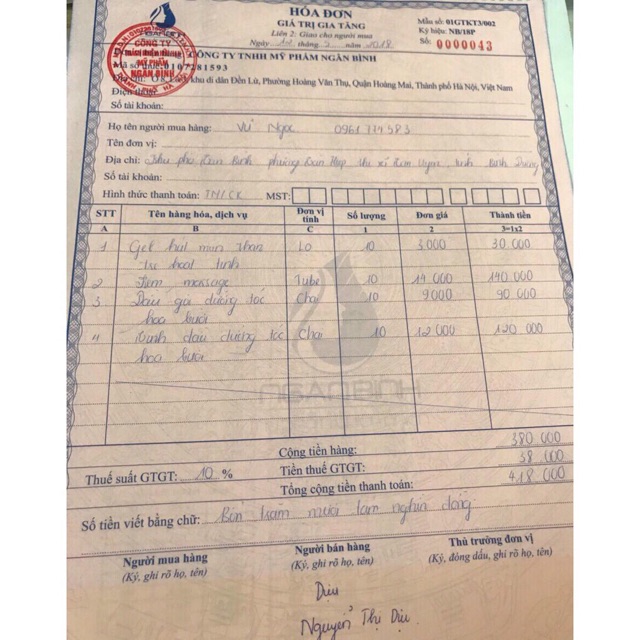 HÓA ĐƠN
GIÁ TRỊ GIA TĂNG
Liên 2: Giao cho người mua
Ngày tháng 5 năm 2018
Mẫu số: 01GTKT3/002
Ký hiệu: NB/18P
Số: 0000043
CÔNG TY
MỸ PHẨM
NGÂN BÌNH
CÔNG TY TNHH MỸ PHẨM NGÂN BÌNH
Mã số thuế: 0107281593
Địa chỉ: khu di dân Đền Lừ, Phường Hoàng Văn Thụ, Quận Hoàng Mai, Thành phố Hà Nội, Việt Nam
Điện thoại:
Số tài khoản:
Họ tên người mua hàng: Vũ Ngọc 0961774583
Tên đơn vị:
Địa chỉ: Khu phố Bình phường thị xã Tân Uyên, tỉnh Bình Dương
Số tài khoản:
Hình thức thanh toán: TM/CK MST:
STT Tên hàng hóa, dịch vụ Đơn vị tính Số lượng Đơn giá Thành tiền
A B C 1 2 3=1x2
1 Gel hút mụn than Lọ 10 3.000 30.000
hoạt tính
2 massage Tube 10 14 000 140.000
3 Dầu gội dưỡng tóc Chai 10 9000 90 000
hoa bưởi
4 Tinh dầu dưỡng tóc Chai 10 12 000 120 000
hoa bưởi
NGANBINH
Cộng tiền hàng: 380 000
Thuế suất GTGT: 10 % Tiền thuế GTGT: 38 000
Tổng cộng tiền thanh toán: 418 000
Số tiền viết bằng chữ: Bốn trăm mười tám nghìn đồng
Người mua hàng Người bán hàng Thủ trưởng đơn vị
(Ký, ghi rõ họ, tên) (Ký, ghi rõ họ, tên) (Ký, đóng dấu, ghi rõ họ, tên)
Dịu
Nguyễn Thị Dịu